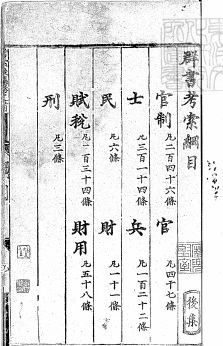 群書考索綱目
後集
官制 凡二百四十六條 官 凡四十七條
士 凡三百一十四條 兵 凡一百二十二條
民 凡六條 財 凡一十一條
賦稅 凡一百三十四條 財用 凡五十八條
刑 凡三條